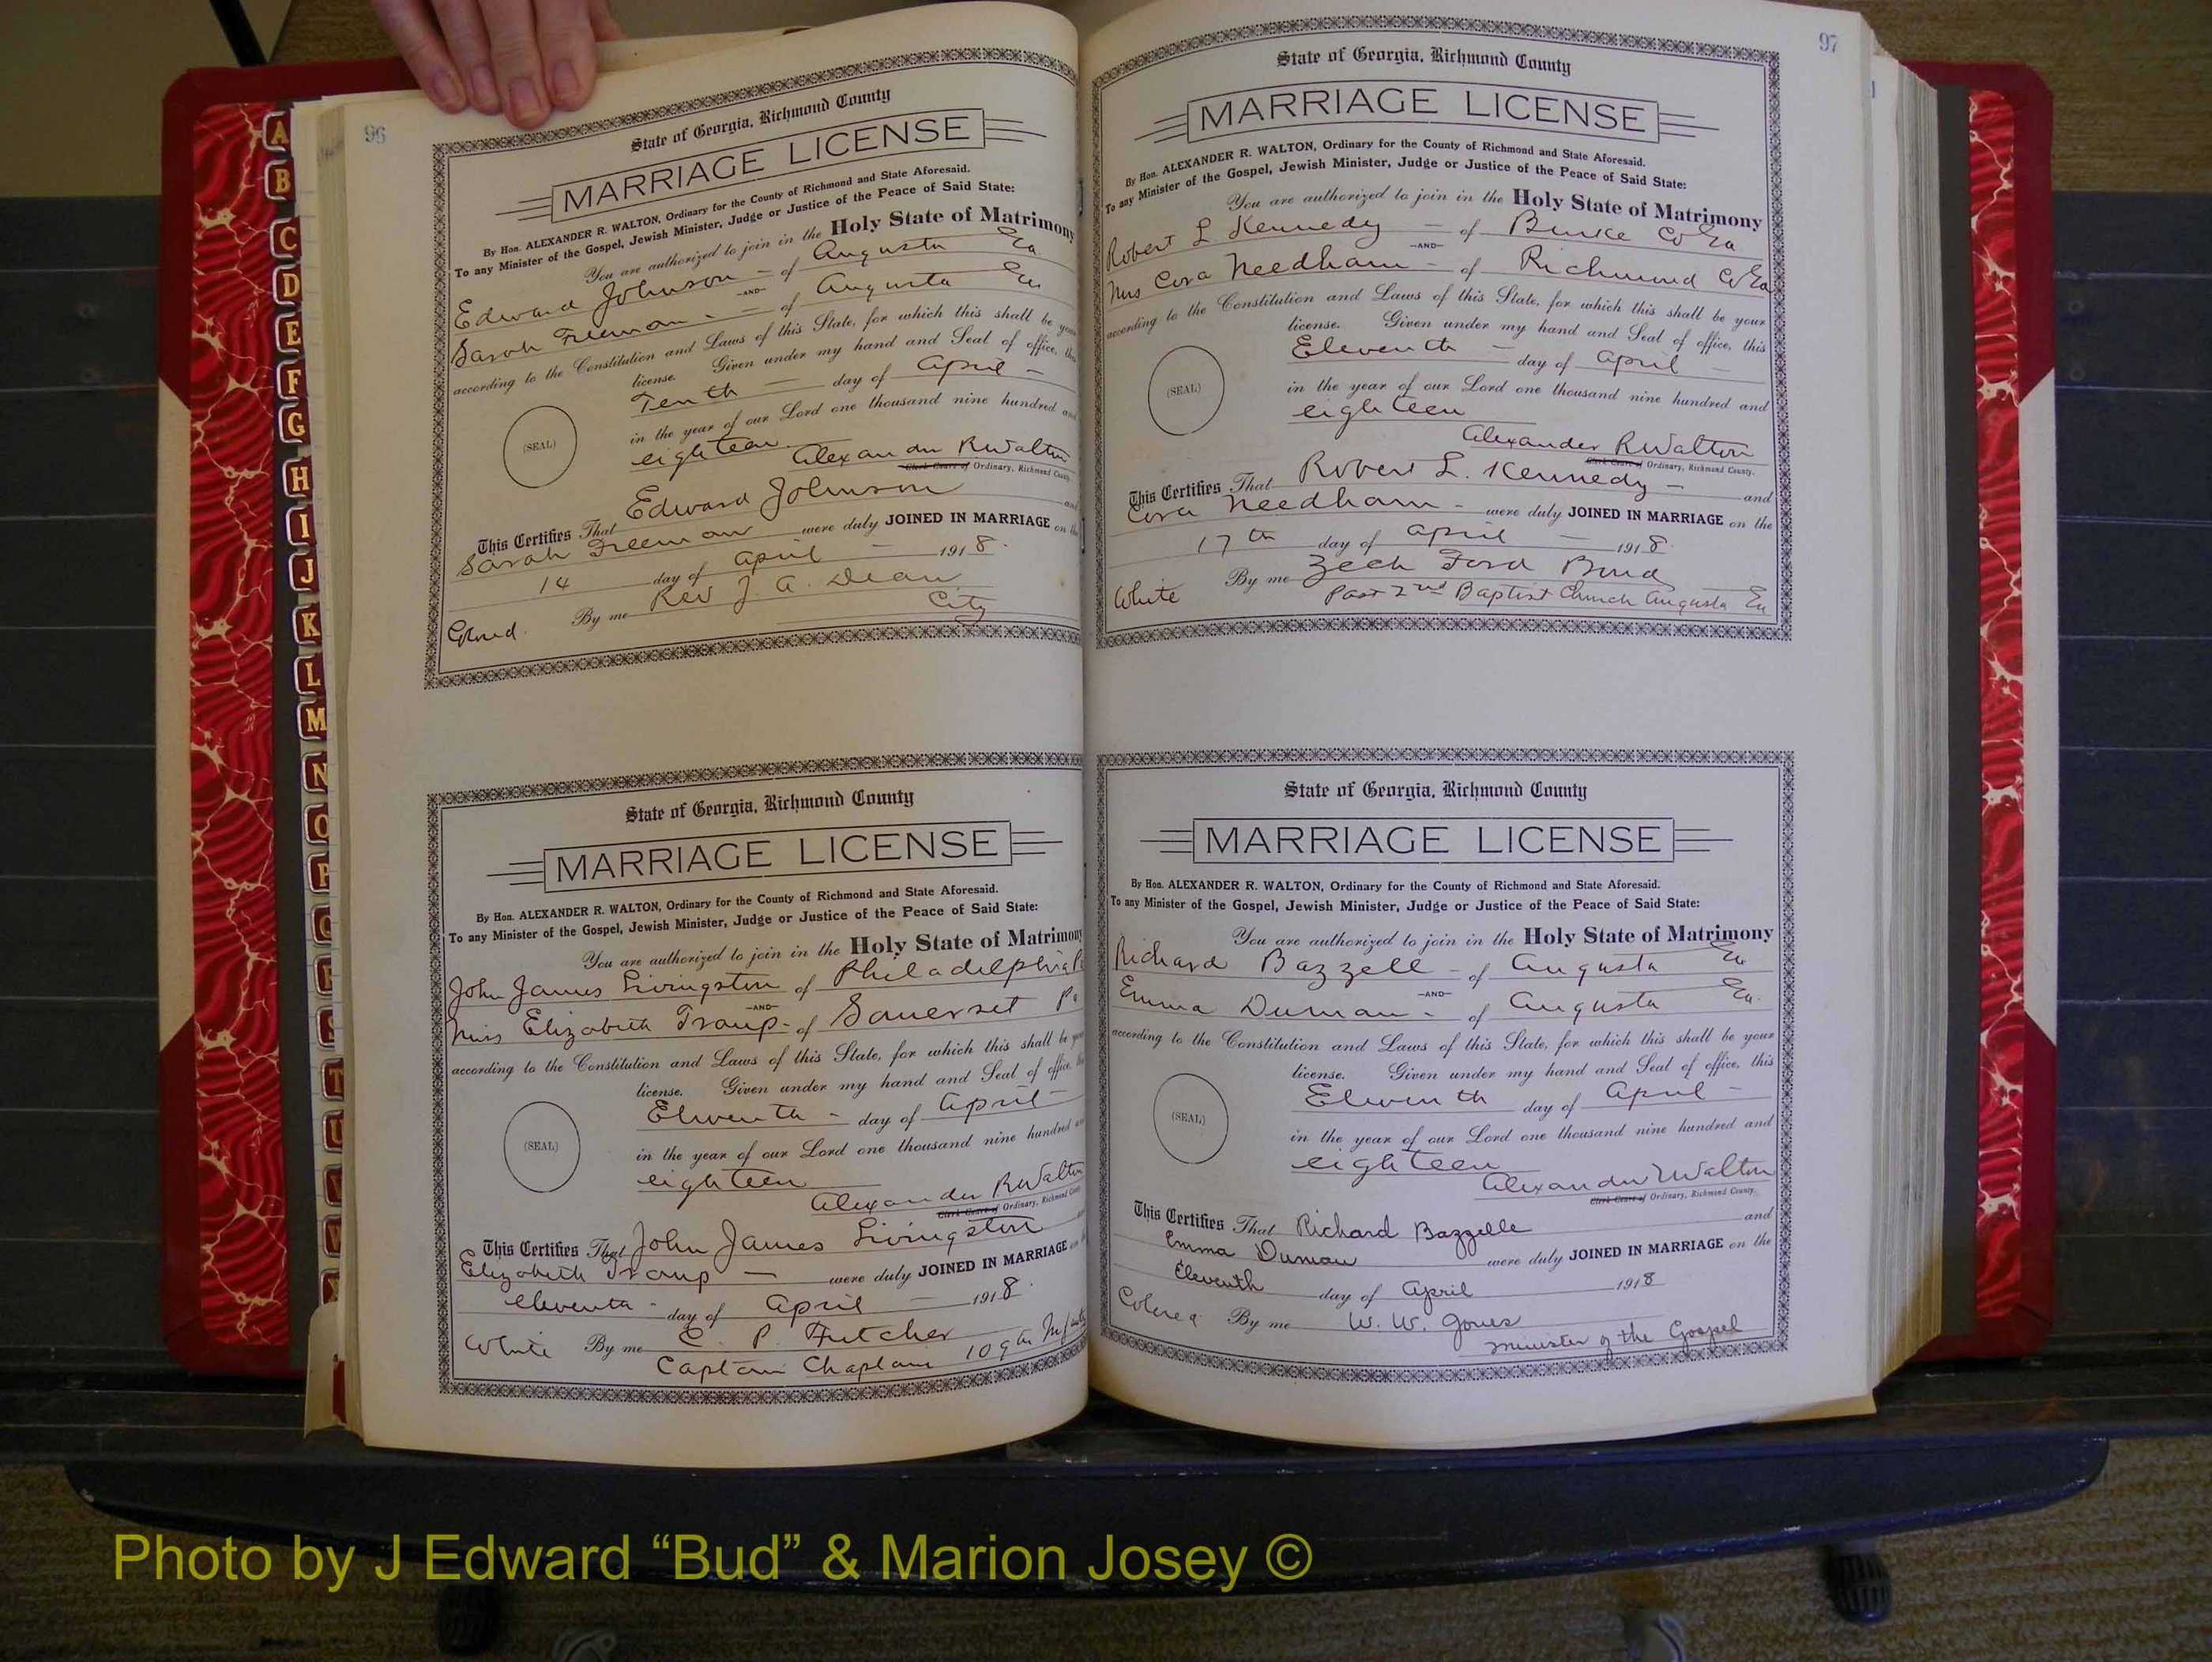 96
State of Georgia, Richmond County
MARRIAGE LICENSE
By Hon. ALEXANDER R. WALTON, Ordinary for the County of Richmond and State Aforesaid.
To any Minister of the Gospel, Jewish Minister, Judge or Justice of the Peace of Said State:
You are authorized to join in the Holy State of Matrimony
Edward Johnson - of Augusta Ga
-AND-
Sarah Freeman - of Augusta Ga
according to the Constitution and Laws of this State, for which this shall be your
license. Given under my hand and Seal of office, this
Tenth - day of April -
(SEAL)
in the year of our Lord one thousand nine hundred and
eighteen
Alexander R Walton
Clerk Court of Ordinary, Richmond County.
This Certifies That Edward Johnson and
Sarah Freeman were duly JOINED IN MARRIAGE on the
14 day of April - 1918.
By me Rev J. A. Dean
Colred. City
State of Georgia, Richmond County
MARRIAGE LICENSE
By Hon. ALEXANDER R. WALTON, Ordinary for the County of Richmond and State Aforesaid.
To any Minister of the Gospel, Jewish Minister, Judge or Justice of the Peace of Said State:
You are authorized to join in the Holy State of Matrimony
John James Livingston of Philadelphia P
-AND-
Miss Elizabeth Traup - of Somerset Pa
according to the Constitution and Laws of this State, for which this shall be your
license. Given under my hand and Seal of office, this
Eleventh - day of April -
(SEAL)
in the year of our Lord one thousand nine hundred and
eighteen
Alexander R Walton
Clerk Court of Ordinary, Richmond County
This Certifies That John James Livingston
Elizabeth Traup - were duly JOINED IN MARRIAGE on the
eleventh - day of April - 1918.
White By me C. P. Futcher
Captain Chaplain 109th Infantry
97
State of Georgia, Richmond County
MARRIAGE LICENSE
By Hon. ALEXANDER R. WALTON, Ordinary for the County of Richmond and State Aforesaid.
To any Minister of the Gospel, Jewish Minister, Judge or Justice of the Peace of Said State:
You are authorized to join in the Holy State of Matrimony
Robert L Kennedy - of Burke Co Ga
-AND-
Mrs Cora Needham - of Richmond Co Ga
according to the Constitution and Laws of this State, for which this shall be your
license. Given under my hand and Seal of office, this
Eleventh - day of April -
(SEAL)
in the year of our Lord one thousand nine hundred and
eighteen
Alexander R Walton
Clerk Court of Ordinary, Richmond County.
This Certifies That Robert L. Kennedy - and
Cora Needham - were duly JOINED IN MARRIAGE on the
17th day of April - 1918.
By me Zech Ford Bond
White Past 2nd Baptist Church Augusta Ga
State of Georgia, Richmond County
MARRIAGE LICENSE
By Hon. ALEXANDER R. WALTON, Ordinary for the County of Richmond and State Aforesaid.
To any Minister of the Gospel, Jewish Minister, Judge or Justice of the Peace of Said State:
You are authorized to join in the Holy State of Matrimony
Richard Bazzell - of Augusta Ga
-AND-
Emma Duman - of Augusta Ga.
according to the Constitution and Laws of this State, for which this shall be your
license. Given under my hand and Seal of office, this
Eleventh day of April -
(SEAL)
in the year of our Lord one thousand nine hundred and
eighteen
Alexander R Walton
Clerk Court of Ordinary, Richmond County.
This Certifies That Richard Bazzelle and
Emma Duman were duly JOINED IN MARRIAGE on the
Eleventh day of April 1918
Colored By me W. W. Jones
Minister of the Gospel
A
B
C
D
E
F
G
H
I
J
K
L
M
N
O
P
Q
R
S
T
U
V
W
Photo by J Edward “Bud” & Marion Josey ©